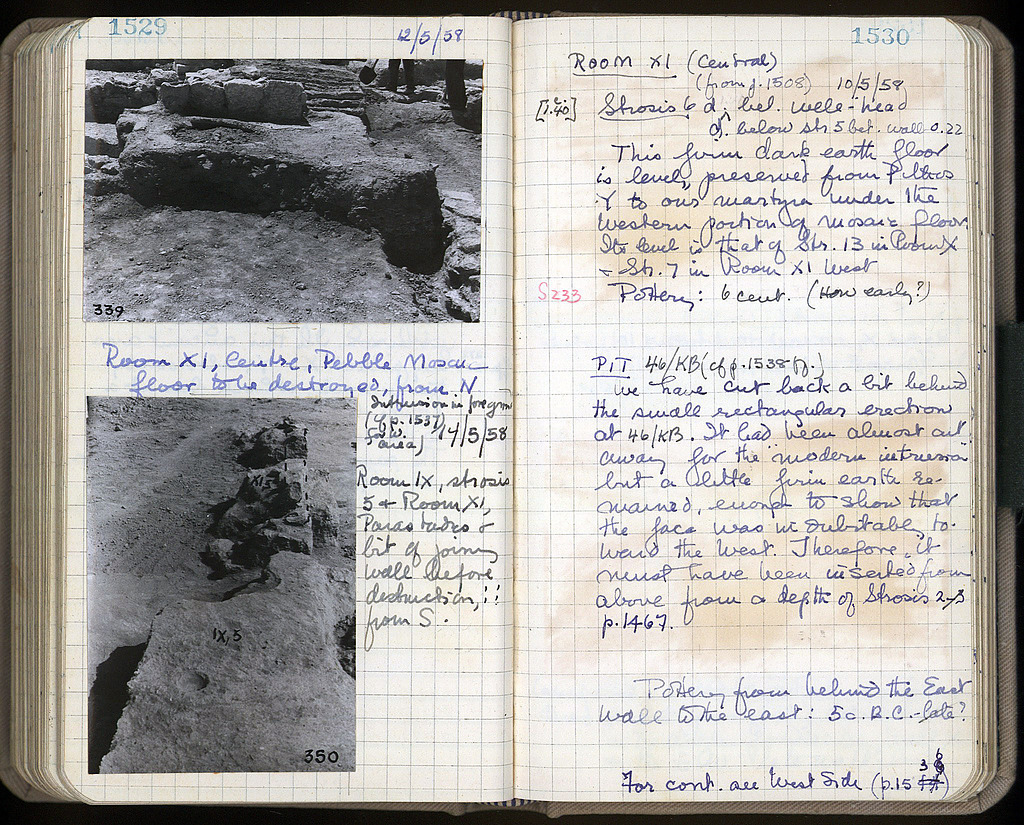 1529
12/5/58
339
Room XI, Centre, Pebble Mosaic
floor to be destroyed, from N
Intrusion in foregrn
(cf p. 1537)
area) 14/5/58
XI,5
Room IX, strosis
5 + Room XI,
Parastades &
bit of joining
wall before
destruction, !!
from S.
IX,5
350
1530
Room XI (Central)
(from p. 1508) 10/5/58
[1.40] Strosis 6 d. bel. well-head
d. below str 5 bet. wall 0.22
This firm dark earth floor
is level, preserved from Pithos
Y to our martyra under the
western portion of mosaic floor.
Its level is that of Str. 13 in Room X
+ Str. 7 in Room XI West
S233 Pottery: 6 cent. (How early?)
PIT 46/KB (cf p. 1538 ff.)
We have cut back a bit behind
the small rectangular erection
at 46/KB. It had been almost cut
away for the modern intrusion
but a little firm earth re-
mained, enough to show that
the face was indubitably to-
ward the West. Therefore, it
must have been inserted from
above from a depth of Strosis 2-3
p. 1467.
Pottery from behind the East
wall to the east: 5 c. B.C. - late?
For cont. see West Side (p. 15 36)